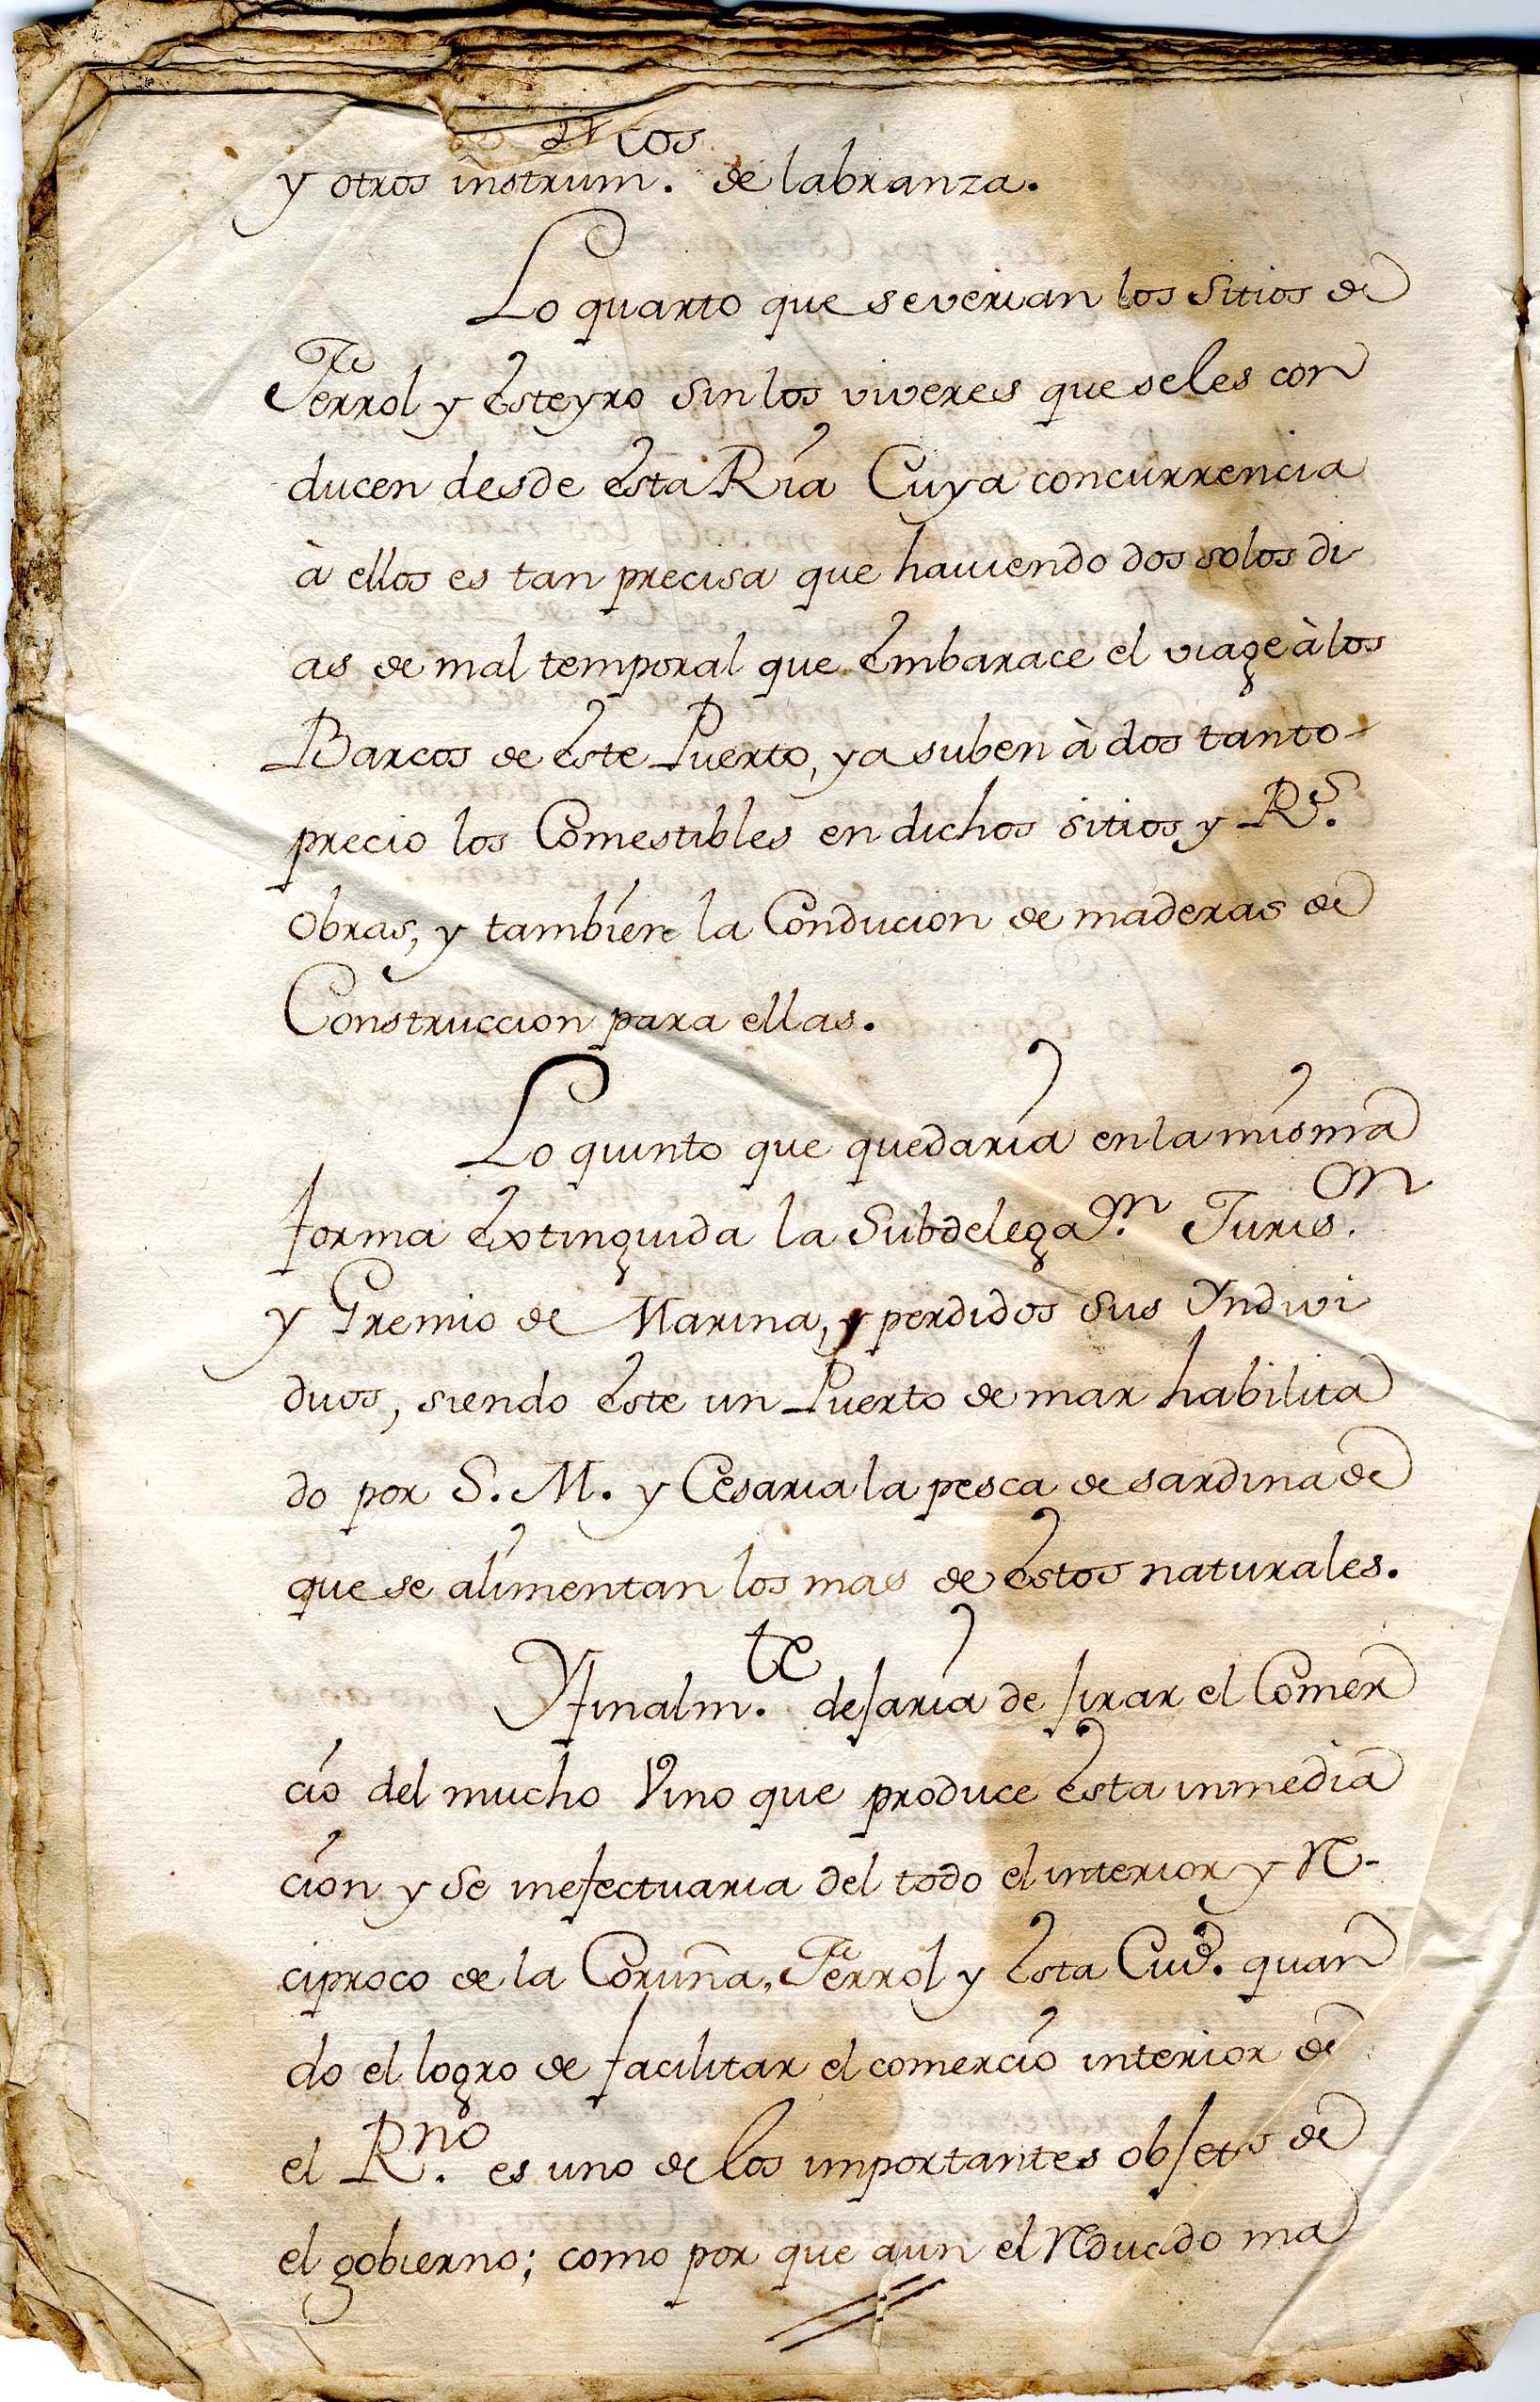 y otros instrum.tos de labranza.
Lo quarto que severian los sitios de
Ferrol y Esteyro sin los viveres que seles con
ducen desde esta Ría Cuya concurrencia
à ellos es tan precisa que haviendo dos solos di
as de mal temporal que Embarace el viage à los
Barcos de este Puerto, ya suben à dos tanto
precio los Comestibles en dichos sitios y R.s
obras, y tambien la Conducion de maderas de
Construccion para ellas.
Lo quinto que quedaría en la misma
forma extinguida la Subdelegaon. Juris.on
y Gremio de Marina, y perdidos sus Yndivi
duos, siendo este un Puerto de mar habilita
do por S. M. y Cesaria la pesca de sardina de
que se alimentan los mas de estos naturales.
Y finalm.te dejaría de jirar el Comer
cio del mucho Vino que produce esta inmedia
cion y se inefectuaria del todo el interior y Re-
ciproco de la Coruña, Ferrol y esta Ciud. quan
do el logro de facilitar el comercio interior de
el R.no es uno de los importantes objetos de
el gobierno; como por que aun el Reducido ma